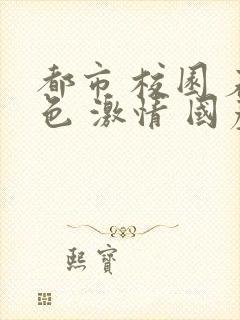 都市 校园
色 激情 國
熙寶